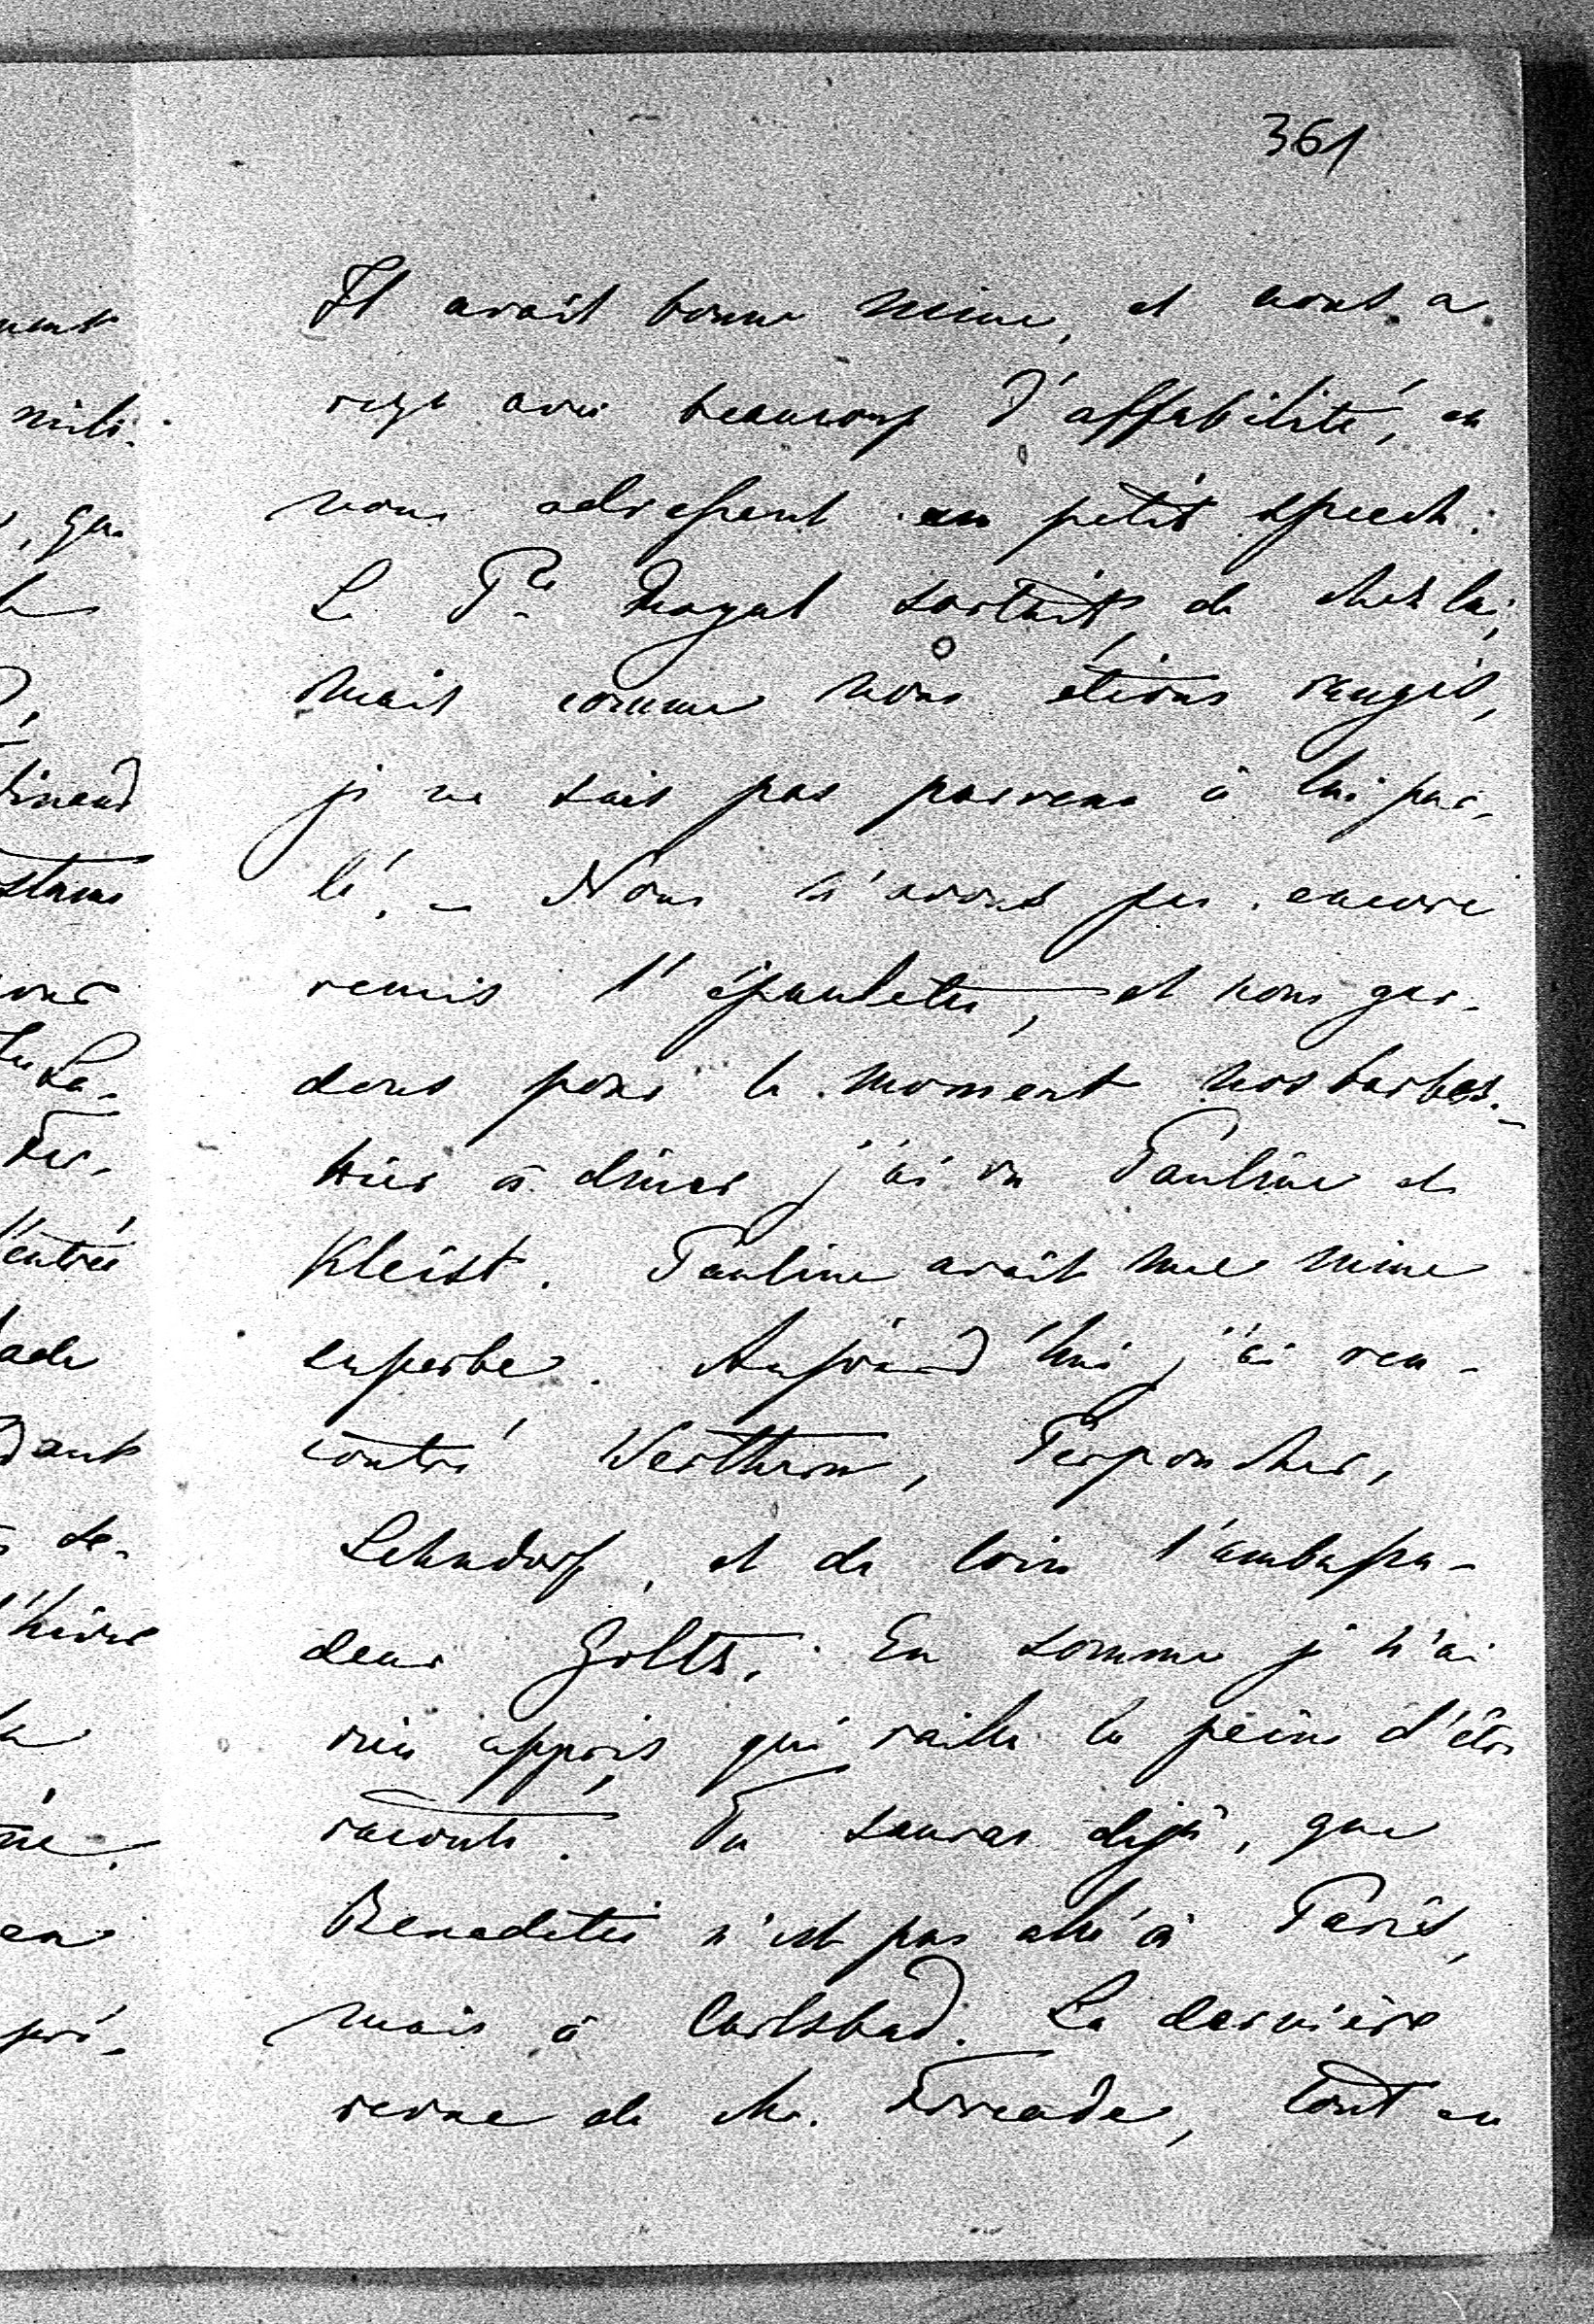 361
Il avait bonne mine, et nous a
reçu avec beaucoup d'affabilité, en
nous adressant un petit speech.
Le Pce Royal sortait de chez lui,
mais comme nous étions rangés,
je ne suis pas parvenu à lui par-
lé. - Nous n'avons pas encore
remis l'épaulette, et nous gar-
dons pour le moment nos barbes. -
Hier à dîner j'ai vu Pauline et
Kleist. Pauline avait une mine
superbe. Aujourd'hui j'ai ren-
contré Werthern, Perponcher,
Lehndorf, et de loin l'ambassa-
deur Goltz. En somme je n'ai
rien appris qui vaille la peine d'être
raconté. Tu sauras déjà, que
Benedetti n'est pas allé à Paris,
mais à Carlsbad. La dernière
revue de Mr. Forcade, tout en